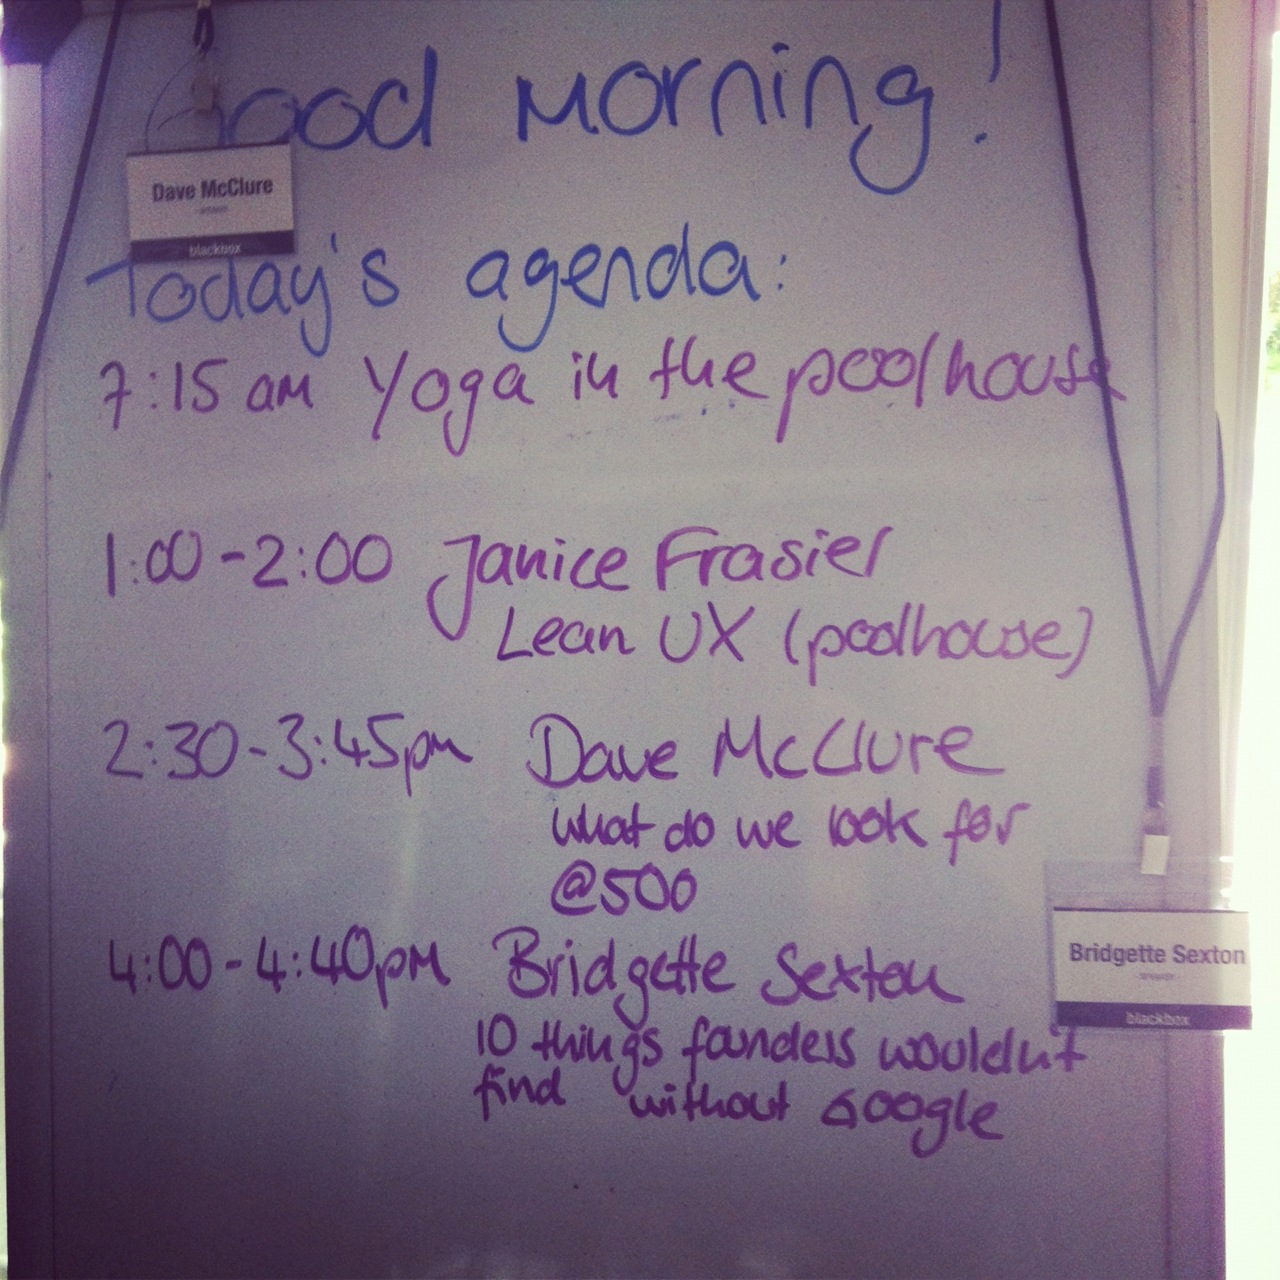 Good Morning!
Dave McClure
blackbox
Today's agenda:
7:15 am Yoga in the poolhouse
1:00-2:00 Janice Frasier
Lean UX (poolhouse)
2:30-3:45pm Dave McClure
what do we look for
@500
4:00-4:40pm Bridgette Sexton
10 things founders wouldn't
find without Google
Bridgette Sexton
blackbox